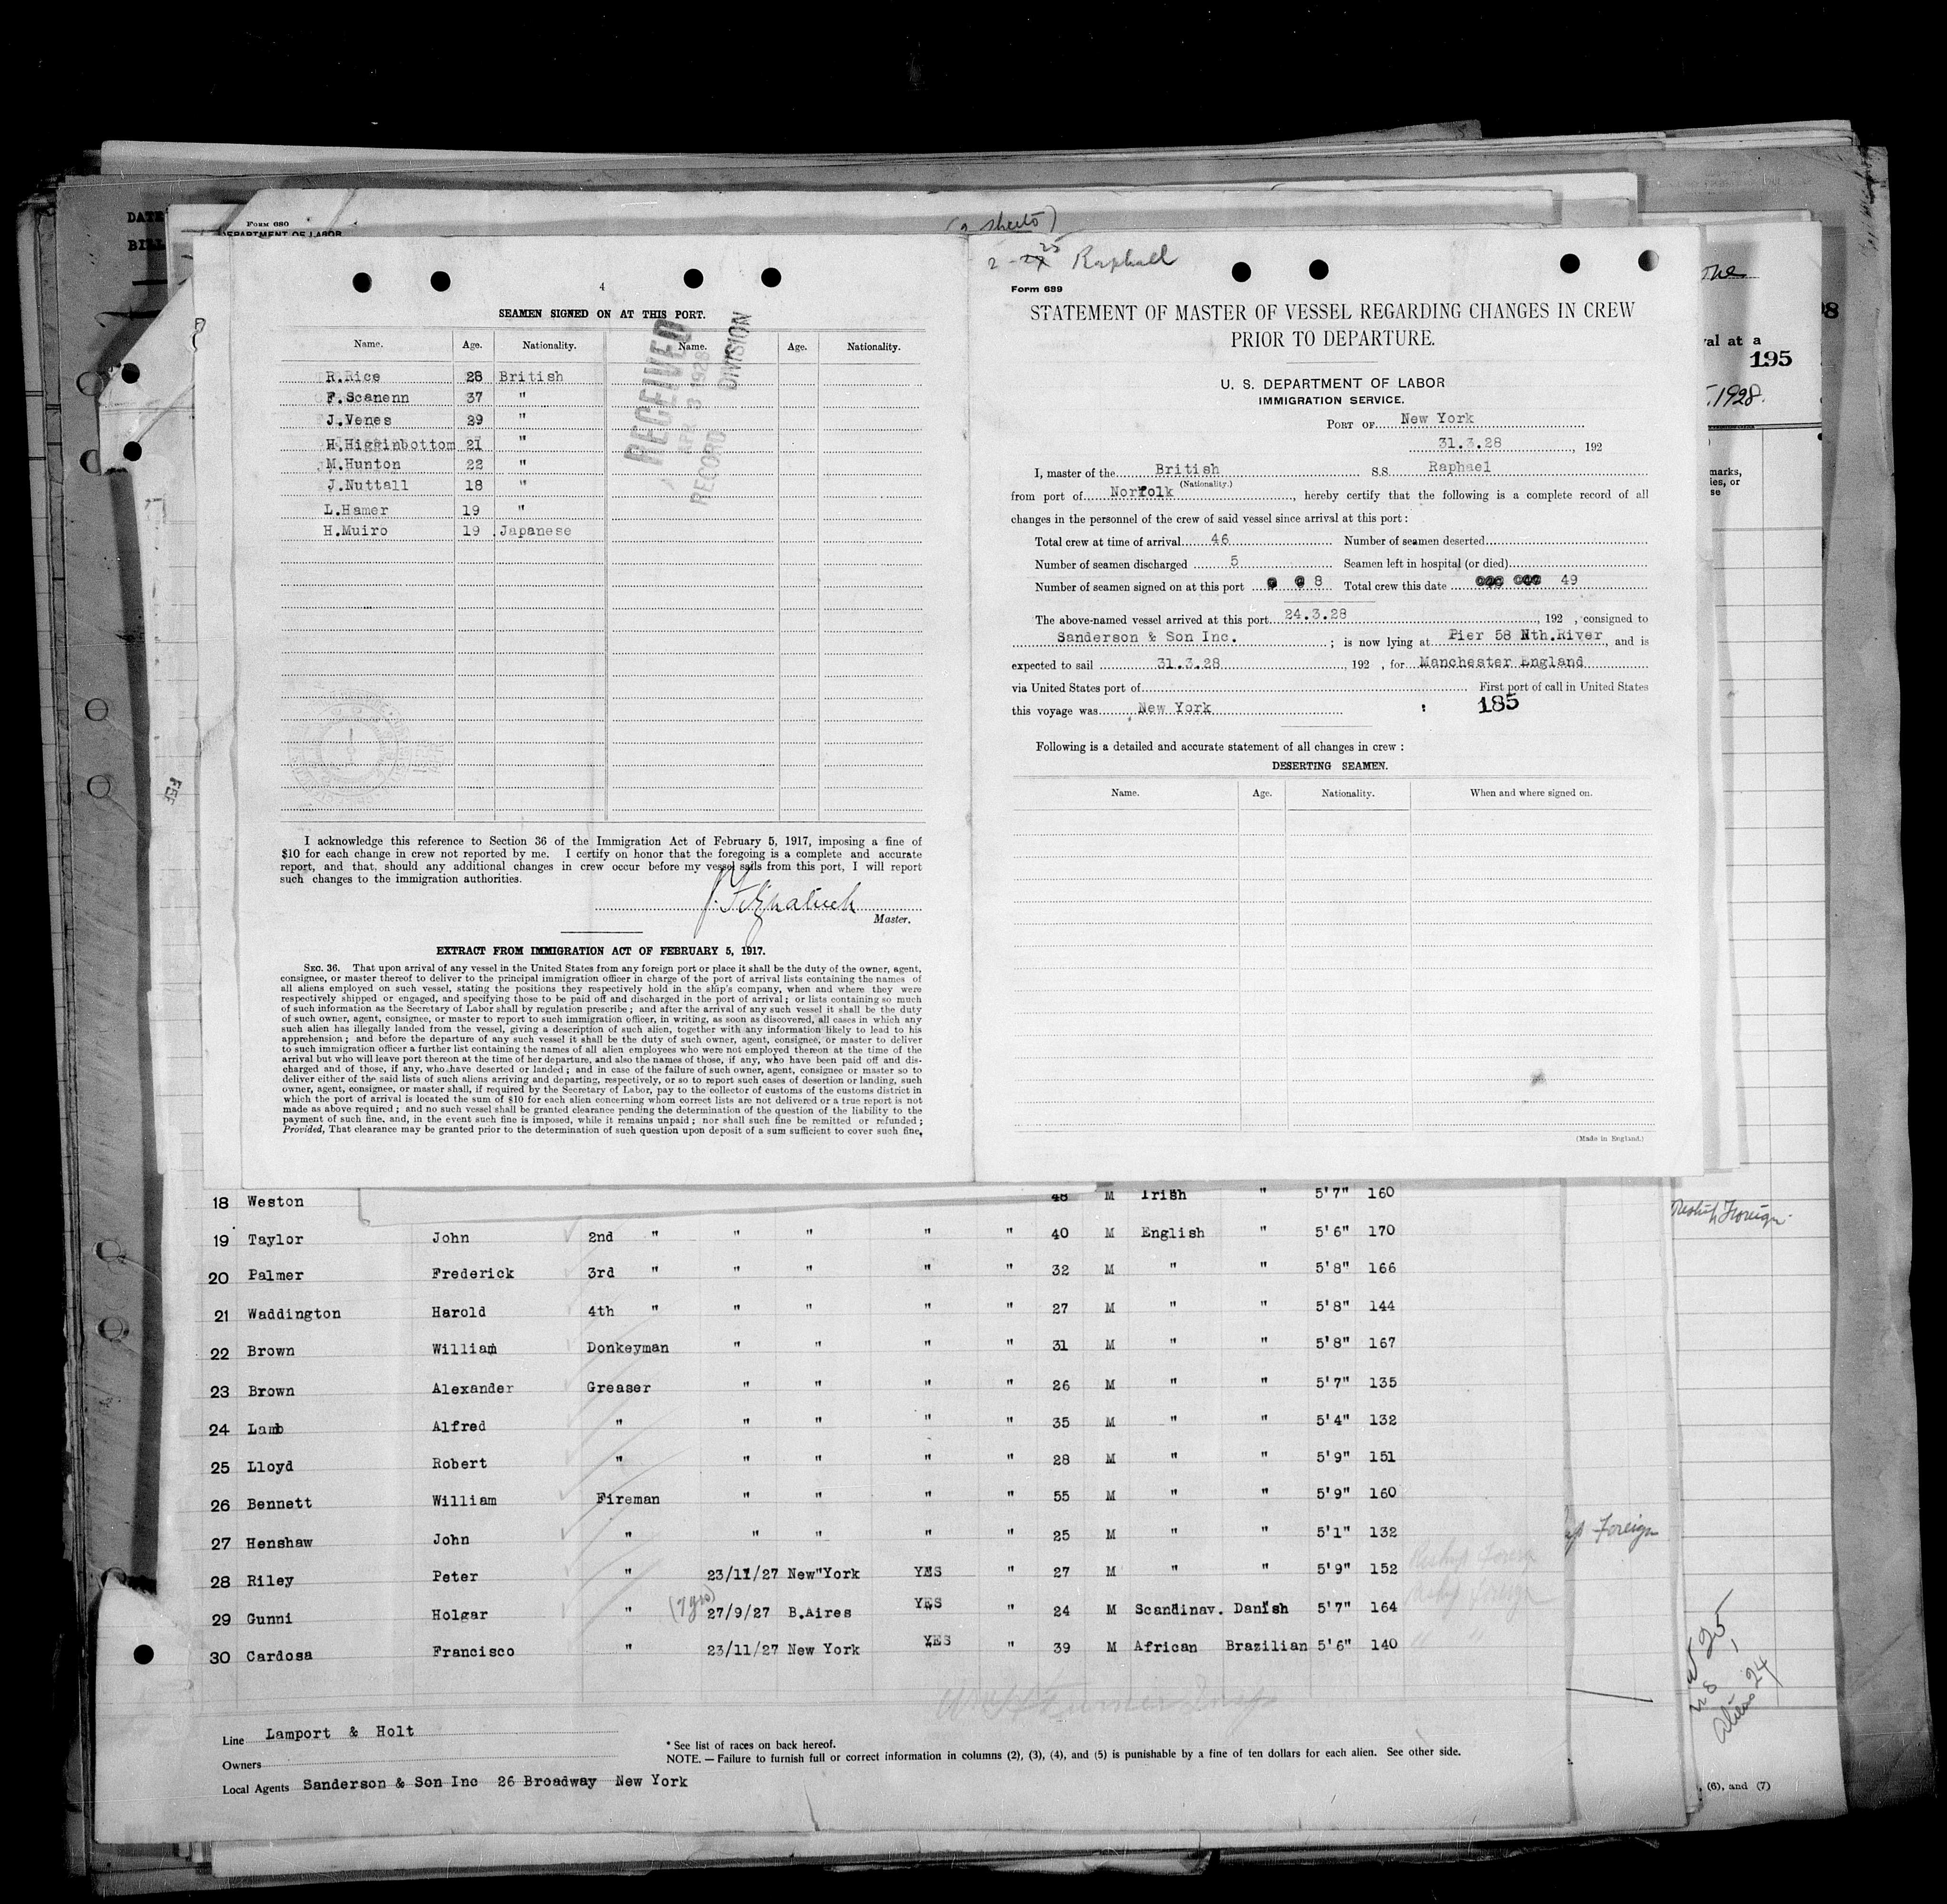 DATE
Form 680
DEPARTMENT OF LABOR
BILL
(2 sheets)
4
SEAMEN SIGNED ON AT THIS PORT.
Name. Age. Nationality. Name. Age. Nationality.
R.Rice 28 British
F.Scanenn 37 "
J.Venes 29 "
H.Higginbottom 21 "
M.Hunton 22 "
J.Nuttall 18 "
L.Hamer 19 "
H.Muiro 19 Japanese
RECEIVED
APR 3 1928
RECORD DIVISION
I acknowledge this reference to Section 36 of the Immigration Act of February 5, 1917, imposing a fine of
$10 for each change in crew not reported by me. I certify on honor that the foregoing is a complete and accurate
report, and that, should any additional changes in crew occur before my vessel sails from this port, I will report
such changes to the immigration authorities.
Master.
EXTRACT FROM IMMIGRATION ACT OF FEBRUARY 5, 1917.
SEC. 36. That upon arrival of any vessel in the United States from any foreign port or place it shall be the duty of the owner, agent,
consignee, or master thereof to deliver to the principal immigration officer in charge of the port of arrival lists containing the names of
all aliens employed on such vessel, stating the positions they respectively hold in the ship's company, when and where they were
respectively shipped or engaged, and specifying those to be paid off and discharged in the port of arrival; or lists containing so much
of such information as the Secretary of Labor shall by regulation prescribe; and after the arrival of any such vessel it shall be the duty
of such owner, agent, consignee, or master to report to such immigration officer, in writing, as soon as discovered, all cases in which any
such alien has illegally landed from the vessel, giving a description of such alien, together with any information likely to lead to his
apprehension; and before the departure of any such vessel it shall be the duty of such owner, agent, consignee, or master to deliver
to such immigration officer a further list containing the names of all alien employees who were not employed thereon at the time of the
arrival but who will leave port thereon at the time of her departure, and also the names of those, if any, who have been paid off and dis-
charged and of those, if any, who have deserted or landed; and in case of the failure of such owner, agent, consignee or master so to
deliver either of the said lists of such aliens arriving and departing, respectively, or so to report such cases of desertion or landing, such
owner, agent, consignee, or master shall, if required by the Secretary of Labor, pay to the collector of customs of the customs district in
which the port of arrival is located the sum of $10 for each alien concerning whom correct lists are not delivered or a true report is not
made as above required; and no such vessel shall be granted clearance pending the determination of the question of the liability to the
payment of such fine, and, in the event such fine is imposed, while it remains unpaid; nor shall such fine be remitted or refunded;
Provided, That clearance may be granted prior to the determination of such question upon deposit of a sum sufficient to cover such fine,
2 - 25 Raphael
Form 689
STATEMENT OF MASTER OF VESSEL REGARDING CHANGES IN CREW
PRIOR TO DEPARTURE.
U. S. DEPARTMENT OF LABOR
IMMIGRATION SERVICE.
PORT OF New York
31.3.28, 192
I, master of the British S.S. Raphael
(Nationality.)
from port of Norfolk, hereby certify that the following is a complete record of all
changes in the personnel of the crew of said vessel since arrival at this port:
Total crew at time of arrival 46 Number of seamen deserted
Number of seamen discharged 5 Seamen left in hospital (or died)
Number of seamen signed on at this port 8 Total crew this date 49
The above-named vessel arrived at this port 24.3.28, 192 , consigned to
Sanderson & Son Inc. ; is now lying at Pier 58 Nth.River, and is
expected to sail 31.3.28, 192 , for Manchester England
via United States port of First port of call in United States
this voyage was New York 185
Following is a detailed and accurate statement of all changes in crew:
DESERTING SEAMEN.
Name. Age. Nationality. When and where signed on.
(Made in England.)
val at a
195
.1928.
marks,
ies, or
se
18 Weston 48 M Irish " 5'7" 160
19 Taylor John 2nd " " " " " 40 M English " 5'6" 170
20 Palmer Frederick 3rd " " " " " 32 M " " 5'8" 166
21 Waddington Harold 4th " " " " " 27 M " " 5'8" 144
22 Brown William Donkeyman " " " " 31 M " " 5'8" 167
23 Brown Alexander Greaser " " " " 26 M " " 5'7" 135
24 Lamb Alfred " " " " " 35 M " " 5'4" 132
25 Lloyd Robert " " " " " 28 M " " 5'9" 151
26 Bennett William Fireman " " " " 55 M " " 5'9" 160
27 Henshaw John " " " " " 25 M " " 5'1" 132
28 Riley Peter " 23/11/27 New"York YES " 27 M " " 5'9" 152 Reship Foreign
29 Gunni Holgar " (7 yrs) 27/9/27 B.Aires YES " 24 M Scandinav. Danish 5'7" 164 Reship Foreign
30 Cardosa Francisco " 23/11/27 New York YES " 39 M African Brazilian 5'6" 140 " "
Reship Foreign
Foreign
Aliens 24
Line Lamport & Holt
Owners
Local Agents Sanderson & Son Inc 26 Broadway New York
* See list of races on back hereof.
NOTE.—Failure to furnish full or correct information in columns (2), (3), (4), and (5) is punishable by a fine of ten dollars for each alien. See other side.
, (6), and (7)